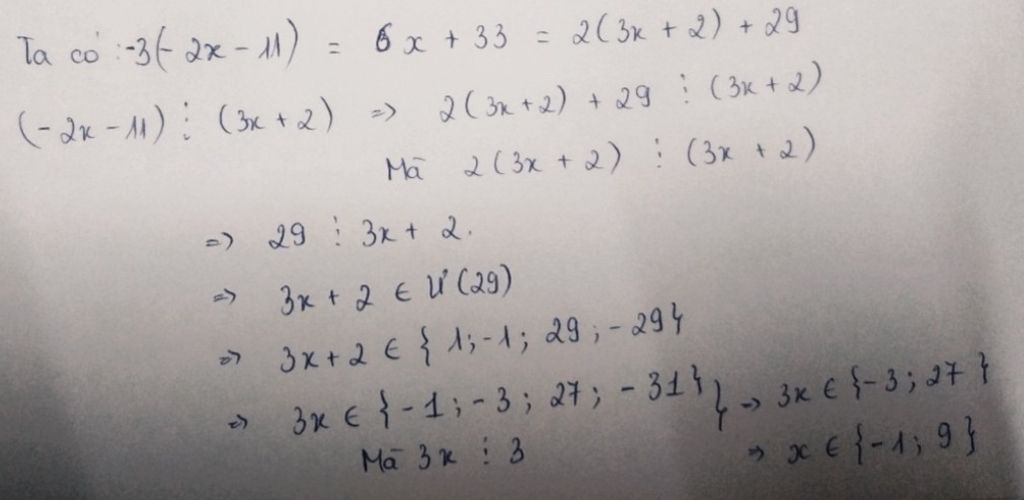 Ta có : -3(-2x - 11) = 6x + 33 = 2(3x + 2) + 29
(-2x - 11) ⋮ (3x + 2) => 2(3x + 2) + 29 ⋮ (3x + 2)
Mã 2(3x + 2) ⋮ (3x + 2)
=> 29 ⋮ 3x + 2.
=> 3x + 2 ∈ Ư(29)
=> 3x + 2 ∈ { 1; -1; 29; -29}
=> 3x ∈ {-1; -3; 27; -31} } => 3x ∈ {-3; 27}
Mã 3x ⋮ 3 => x ∈ {-1; 9}